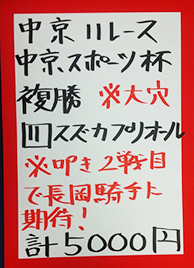 中京11レース
中京スポーツ杯
複勝 ※大穴
⑪スズカプリオール
※叩き2戦目
で長岡騎手に
期待！
計5000円